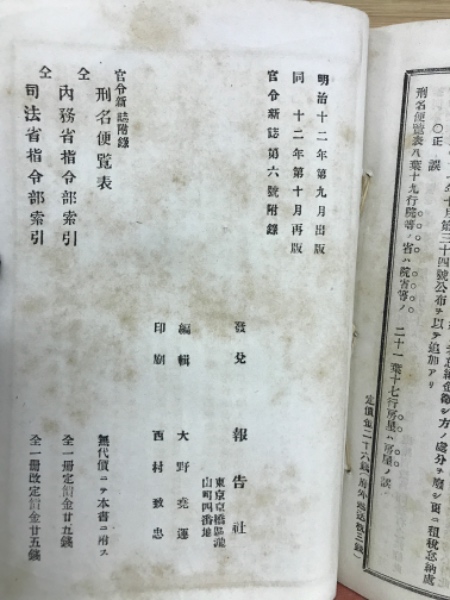 十月第三十四號公布ヲ以テ追加アリ
○正誤
刑名便覧表八葉十九行院等ノ省ハ院省等ノ 二十一葉十七行房星ハ房屋ノ誤
明治十二年第九月出版
同 十二年第十月再版
官令新誌第六號附錄
發兌 報告社
東京京橋區瀧
山町四番地
編輯 大野堯運
印刷 西村致忠
官令新誌附錄
刑名便覽表 無代價ニテ本書ニ附ス
仝
內務省指令部索引 全一冊定價金廿五錢
仝
司法省指令部索引 全一冊改定價金廿五錢